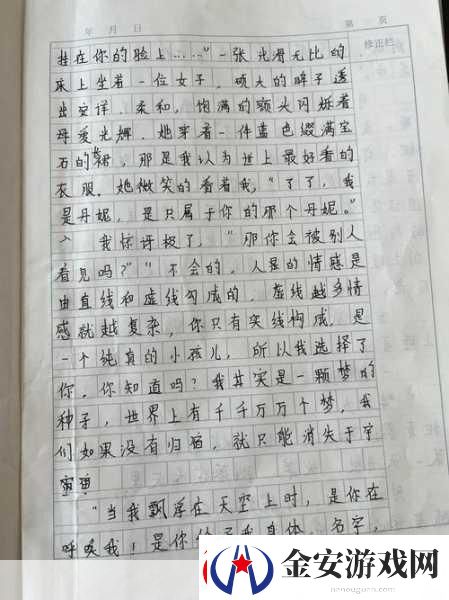 年 月 日 第 页
修正栏
挂在你的脸上……"一张光滑无比的
床上坐着一位女子，硕大的眸子透
出安详、柔和，饱满的额头闪烁着
母爱光辉。她穿着一件蓝色缀满宝
石的裙，那是我认为世上最好看的
衣服。她微笑的看着我，"了了，我
是丹妮，是只属于你的那个丹妮。"
我惊讶极了，"那你会被别人
看见吗？""不会的，人显的情感是
由直线和虚线勾成的，虚线越多情
感就越复杂，你只有实线构成，是
一个纯真的小孩儿，所以我选择了
你。你知道吗？我其实是一颗梦的
种子，世界上有千千万万个梦，我
们如果没有归宿，就只能消失于宇
宙
"当我飘浮在天空上时，是你在
呼唤我！是你给予我身体、名字，
金安游戏网
nengxuan.com